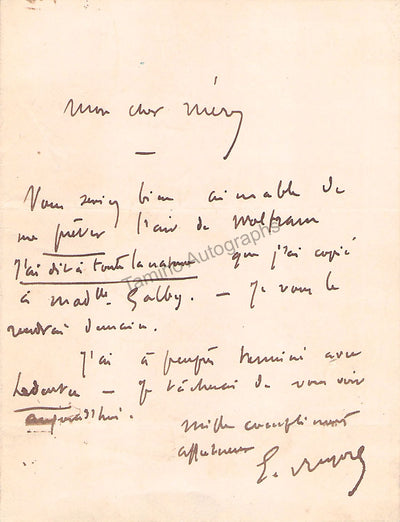 Mon cher Méry
—
Vous seriez bien aimable de
me prêter l'air de Wolfram
J'ai dit à toute la nature que j'ai copié
à Madlle Galby. — Je vous le
rendrai demain.
J'ai à peu près terminé avec
— Je tâcherai de vous voir
aujourd'hui.
mille compliments
affectueux
E.
Tamino Autographs